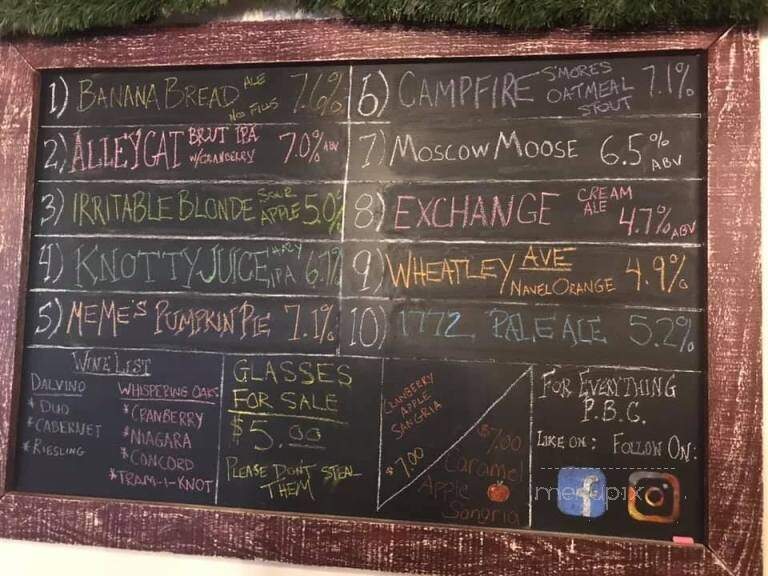 1) BANANA BREAD ALE NO FILLS 7.6%
2) ALLEYCAT BRUT IPA W/CRANBERRY 7.0% ABV
3) IRRITABLE BLONDE SOUR APPLE 5.0%
4) KNOTTY JUICE HAZY IPA 6.7%
5) MEME'S PUMPKIN PIE 7.1%
6) CAMPFIRE S'MORES OATMEAL STOUT 7.1%
7) MOSCOW MOOSE 6.5% ABV
8) EXCHANGE CREAM ALE 4.7% ABV
9) WHEATLEY AVE NAVEL ORANGE 4.9%
10) 1772 PALE ALE 5.2%
WINE LIST
DALVINO
* DUO
* CABERNET
* RIESLING
WHISPERING OAKS
* CRANBERRY
* NIAGARA
* CONCORD
* TRAM-I-KNOT
GLASSES
FOR SALE
$5.00
PLEASE DON'T STEAL
THEM
CRANBERRY
APPLE
SANGRIA
$7.00
$7.00
Caramel
Apple
Sangria
FOR EVERYTHING
P.B.C.
LIKE ON: FOLLOW ON:
menupix